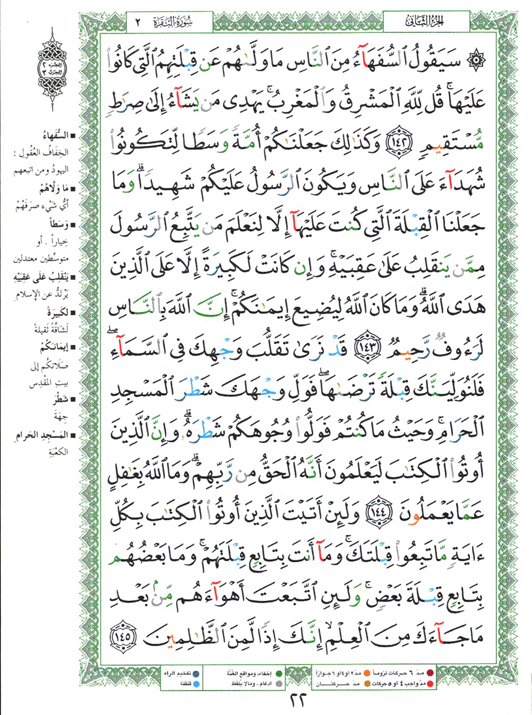 الجزء الثاني
سورة البقرة
٢
سَيَقُولُ السُّفَهَاءُ مِنَ النَّاسِ مَا وَلَّىٰهُمْ عَن قِبْلَتِهِمُ الَّتِي كَانُوا
عَلَيْهَا ۚ قُل لِّلَّهِ الْمَشْرِقُ وَالْمَغْرِبُ ۚ يَهْدِي مَن يَشَاءُ إِلَىٰ صِرَٰطٍ
مُّسْتَقِيمٍ ﴿١٤٢﴾ وَكَذَٰلِكَ جَعَلْنَٰكُمْ أُمَّةً وَسَطًا لِّتَكُونُوا
شُهَدَاءَ عَلَى النَّاسِ وَيَكُونَ الرَّسُولُ عَلَيْكُمْ شَهِيدًا ۗ وَمَا
جَعَلْنَا الْقِبْلَةَ الَّتِي كُنتَ عَلَيْهَا إِلَّا لِنَعْلَمَ مَن يَتَّبِعُ الرَّسُولَ
مِمَّن يَنقَلِبُ عَلَىٰ عَقِبَيْهِ ۚ وَإِن كَانَتْ لَكَبِيرَةً إِلَّا عَلَى الَّذِينَ
هَدَى اللَّهُ ۗ وَمَا كَانَ اللَّهُ لِيُضِيعَ إِيمَٰنَكُمْ ۚ إِنَّ اللَّهَ بِالنَّاسِ
لَرَءُوفٌ رَّحِيمٌ ﴿١٤٣﴾ قَدْ نَرَىٰ تَقَلُّبَ وَجْهِكَ فِي السَّمَاءِ ۖ
فَلَنُوَلِّيَنَّكَ قِبْلَةً تَرْضَىٰهَا ۚ فَوَلِّ وَجْهَكَ شَطْرَ الْمَسْجِدِ
الْحَرَامِ ۚ وَحَيْثُ مَا كُنتُمْ فَوَلُّوا وُجُوهَكُمْ شَطْرَهُ ۗ وَإِنَّ الَّذِينَ
أُوتُوا الْكِتَٰبَ لَيَعْلَمُونَ أَنَّهُ الْحَقُّ مِن رَّبِّهِمْ ۗ وَمَا اللَّهُ بِغَٰفِلٍ
عَمَّا يَعْمَلُونَ ﴿١٤٤﴾ وَلَئِنْ أَتَيْتَ الَّذِينَ أُوتُوا الْكِتَٰبَ بِكُلِّ
ءَايَةٍ مَّا تَبِعُوا قِبْلَتَكَ ۚ وَمَا أَنتَ بِتَابِعٍ قِبْلَتَهُمْ ۚ وَمَا بَعْضُهُم
بِتَابِعٍ قِبْلَةَ بَعْضٍ ۚ وَلَئِنِ اتَّبَعْتَ أَهْوَاءَهُم مِّن بَعْدِ
مَا جَاءَكَ مِنَ الْعِلْمِ ۙ إِنَّكَ إِذًا لَّمِنَ الظَّٰلِمِينَ ﴿١٤٥﴾
■ السُّفَهاءُ
الخِفافُ العُقُول:
اليهودُ ومن اتبعهم
■ مَا وَلَّاهُمْ
أيُّ شيْء صرَفَهُمْ
■ وَسَطاً
خِياراً. أو
متوسِّطين معتدلين
■ يَنْقَلِبُ عَلى عَقِبَيْهِ
يَرْتدُّ عن الإسلام
■ لَكَبيرَةً
لشاقَّةً ثقيلة
■ إيمَانَكُمْ
صلاتكم إلى
بيت المقْدِس
■ شَطْرَ
جِهَةَ
■ المَسْجِدِ الحَرامِ
الكعْبَة
مدّ ٦ حركات لزوماً
مدّ ٢ او ٤ او ٦ جوازاً
إخفاء، ومواقع الغُنَّة
تفخيم الراء
مدّ واجب ٤ او ٥ حركات
مدّ حركتان
إدغام، ومالا يُلفظ
قلقلة
٢٢